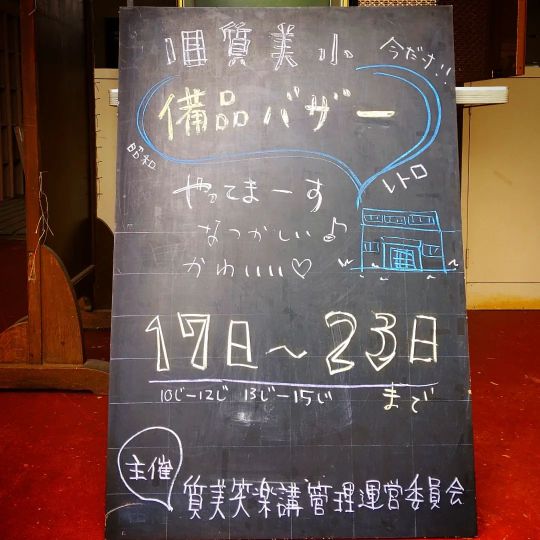 旧質美小
今だけ!!
備品バザー
昭和
レトロ
やってまーす
なつかしい♪
かわいい♡
17日～23日
10じー12じ 13じー15じ まで
主催
質美笑楽講管理運営委員会